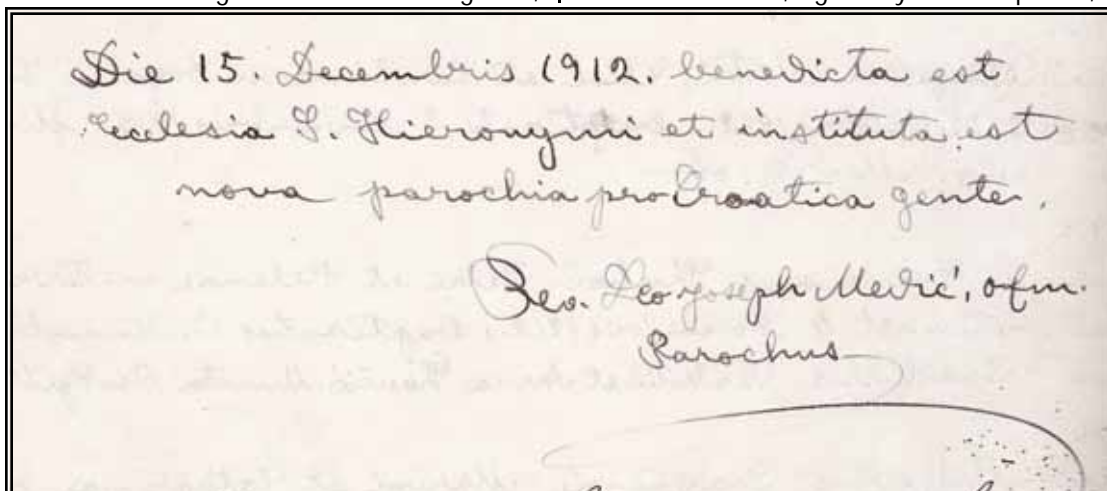 Die 15. Decembris 1912. benedicta est
Ecclesia S. Hieronymi et instituta est
nova parochia pro Croatica gente.
Rev. Leo Joseph Medić, ofm.
Parochus